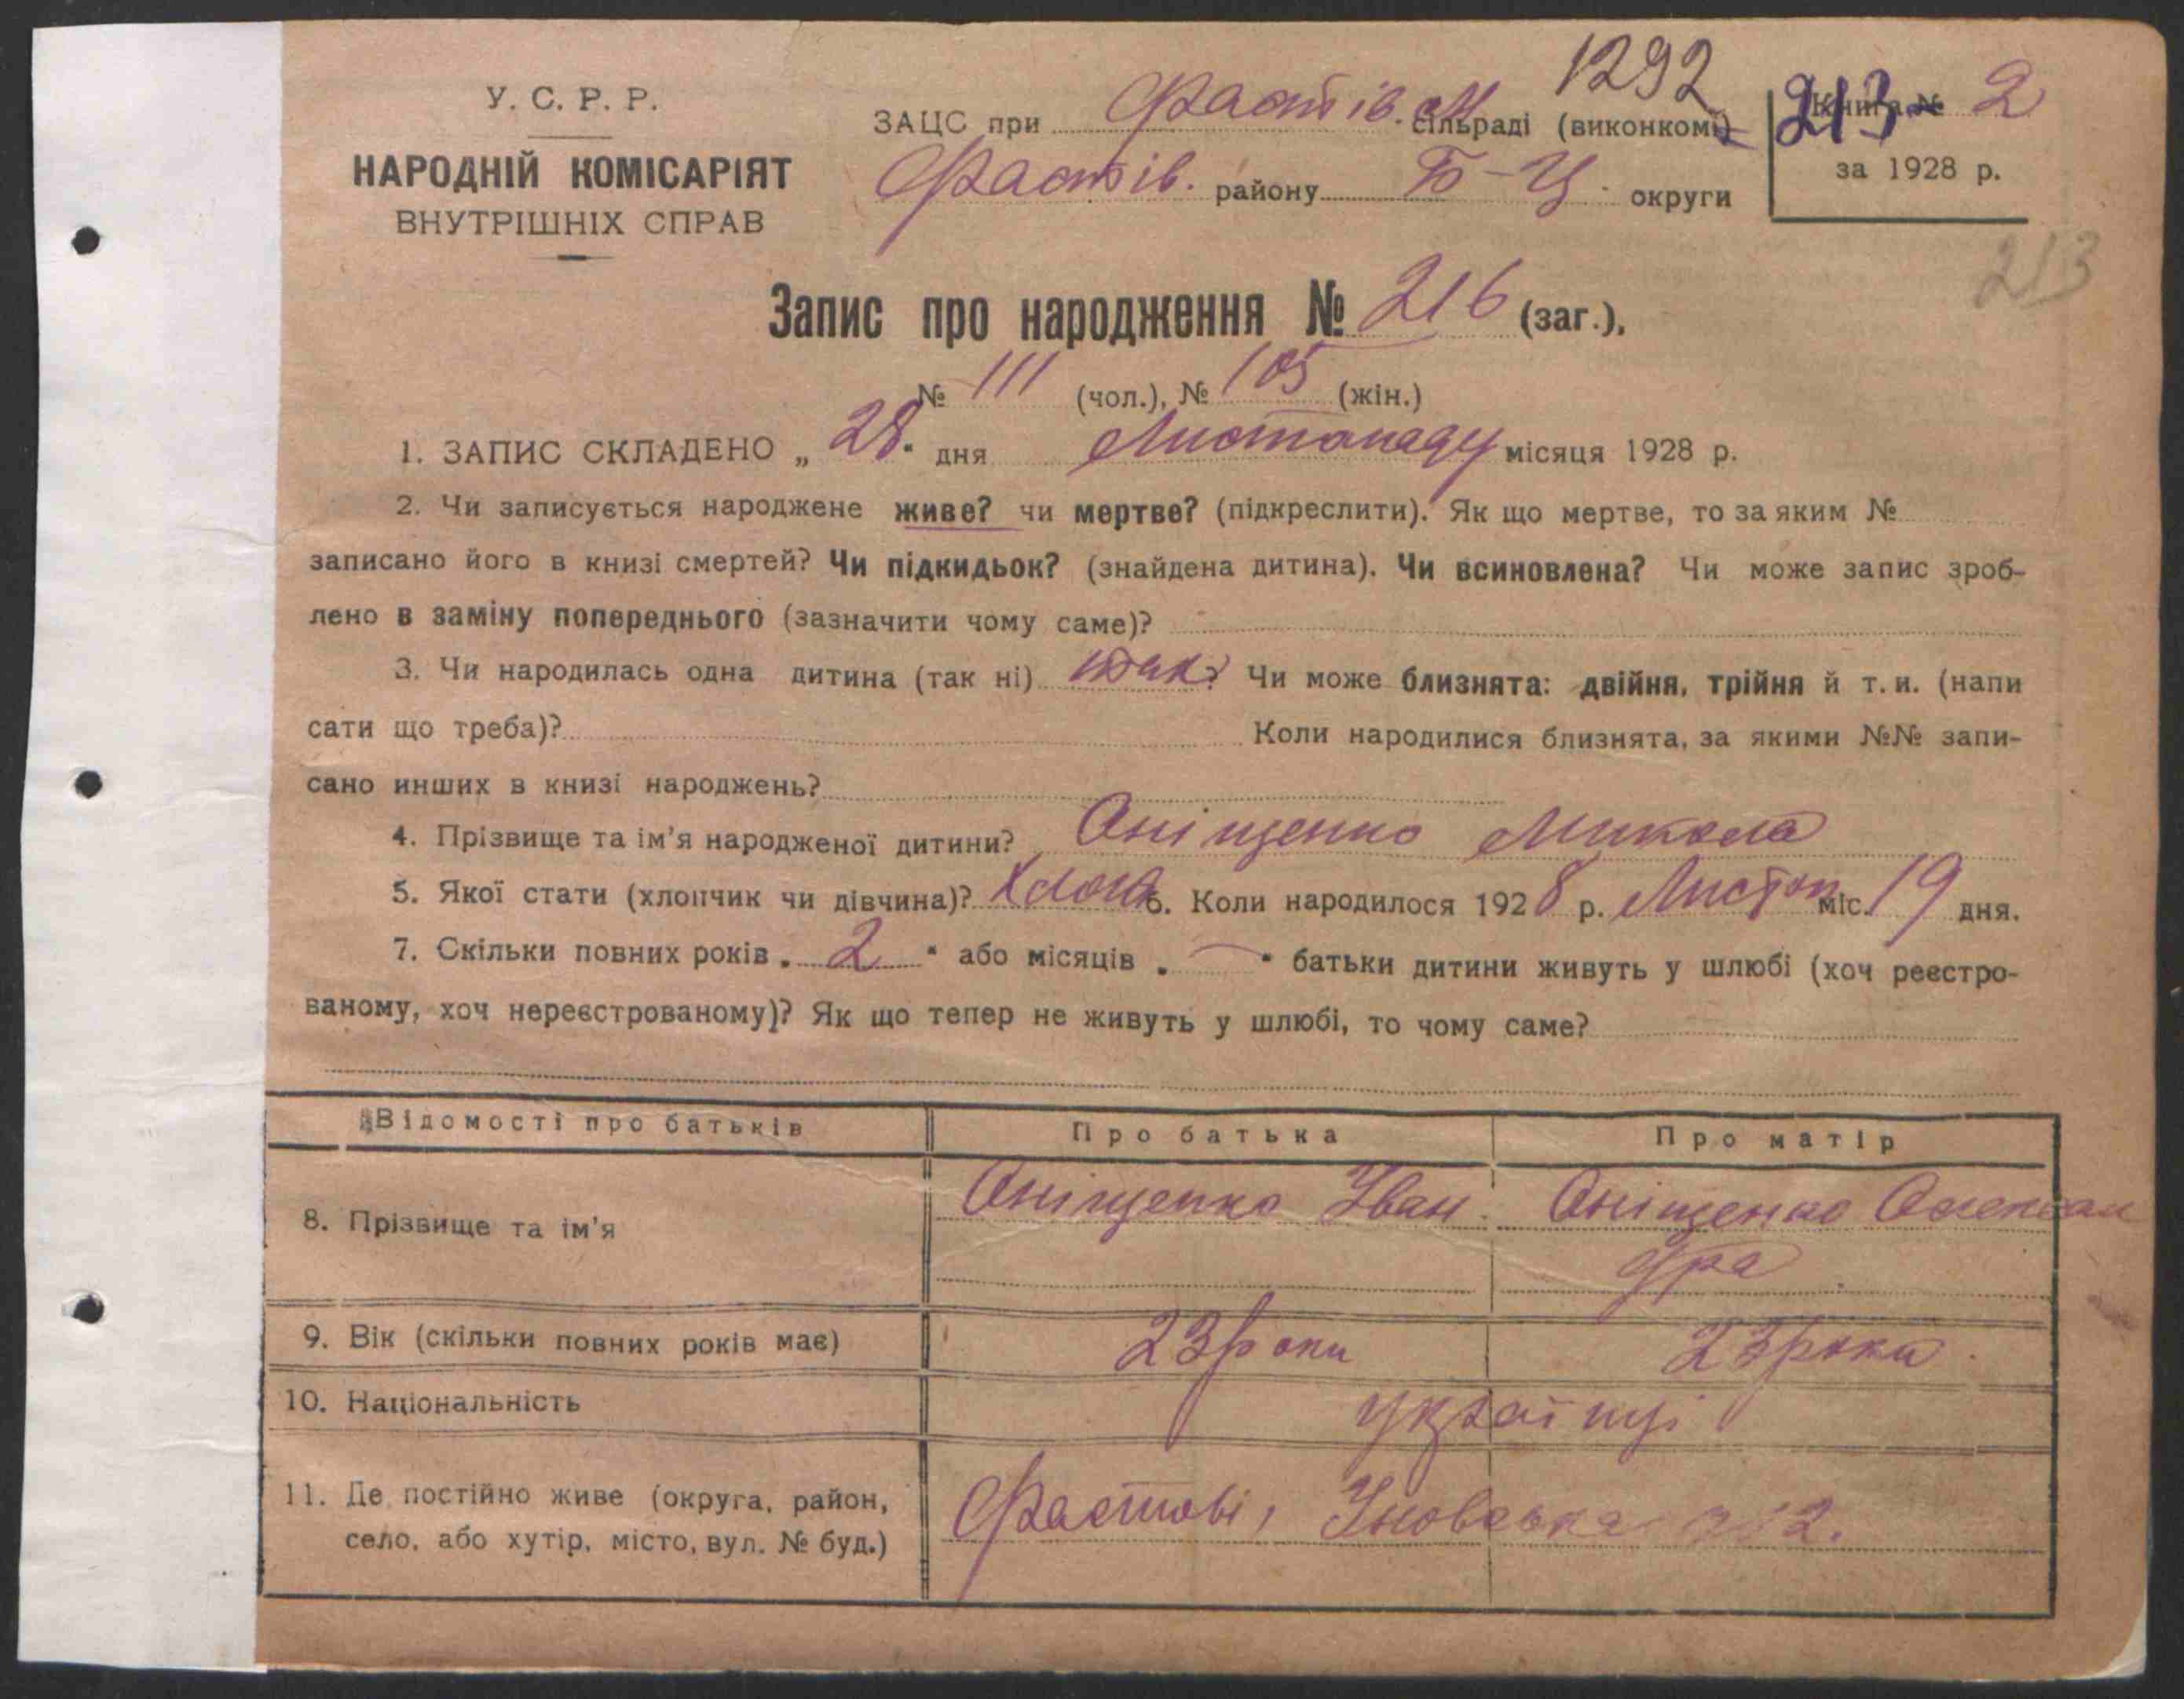 У. С. Р. Р.
НАРОДНІЙ КОМІСАРІЯТ
ВНУТРІШНІХ СПРАВ
1292
ЗАЦС при Фастів. М сільраді (виконкомі)
Фастів. району Б-Ц. округи
213
Книга № 2
за 1928 р.
213
Запис про народження № 216 (заг.),
№ 111 (чол.), № 105 (жін.)
1. ЗАПИС СКЛАДЕНО „ 28 “ дня Листопаду місяця 1928 р.
2. Чи записується народжене живе? чи мертве? (підкреслити). Як що мертве, то за яким №
записано його в книзі смертей? Чи підкидьок? (знайдена дитина). Чи всиновлена? Чи може запис зроб-
лено в заміну попереднього (зазначити чому саме)?
3. Чи народилась одна дитина (так ні) так? Чи може близнята: двійня, трійня й т. и. (напи
сати що треба)? Коли народилися близнята, за якими №№ запи-
сано инших в книзі народжень?
4. Прізвище та ім'я народженої дитини? Оніщенко Микола
5. Якої стати (хлопчик чи дівчина)? Хлоп. 6. Коли народилося 1928 р. Листоп. міс. 19 дня.
7. Скільки повних років „ 2 “ або місяців „ — “ батьки дитини живуть у шлюбі (хоч реєстро-
ваному, хоч нереєстрованому)? Як що тепер не живуть у шлюбі, то чому саме?
Відомості про батьків Про батька Про матір
8. Прізвище та ім'я Оніщенко Іван. Оніщенко Олександра
9. Вік (скільки повних років має) 23 роки 23 роки.
10. Національність українці
11. Де постійно живе (округа, район,
село, або хутір, місто, вул. № буд.) Фастові,